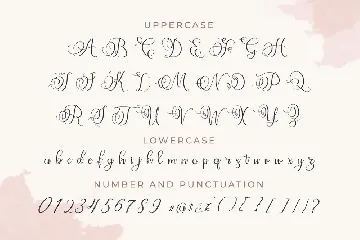 UPPERCASE
A B C D E F G H
I J K L M N O P Q
R S T U V W X Y Z
LOWERCASE
a b c d e f g h i j k l m n o p q r s t u v w x y z
NUMBER AND PUNCTUATION
0 1 2 3 4 5 6 7 8 9